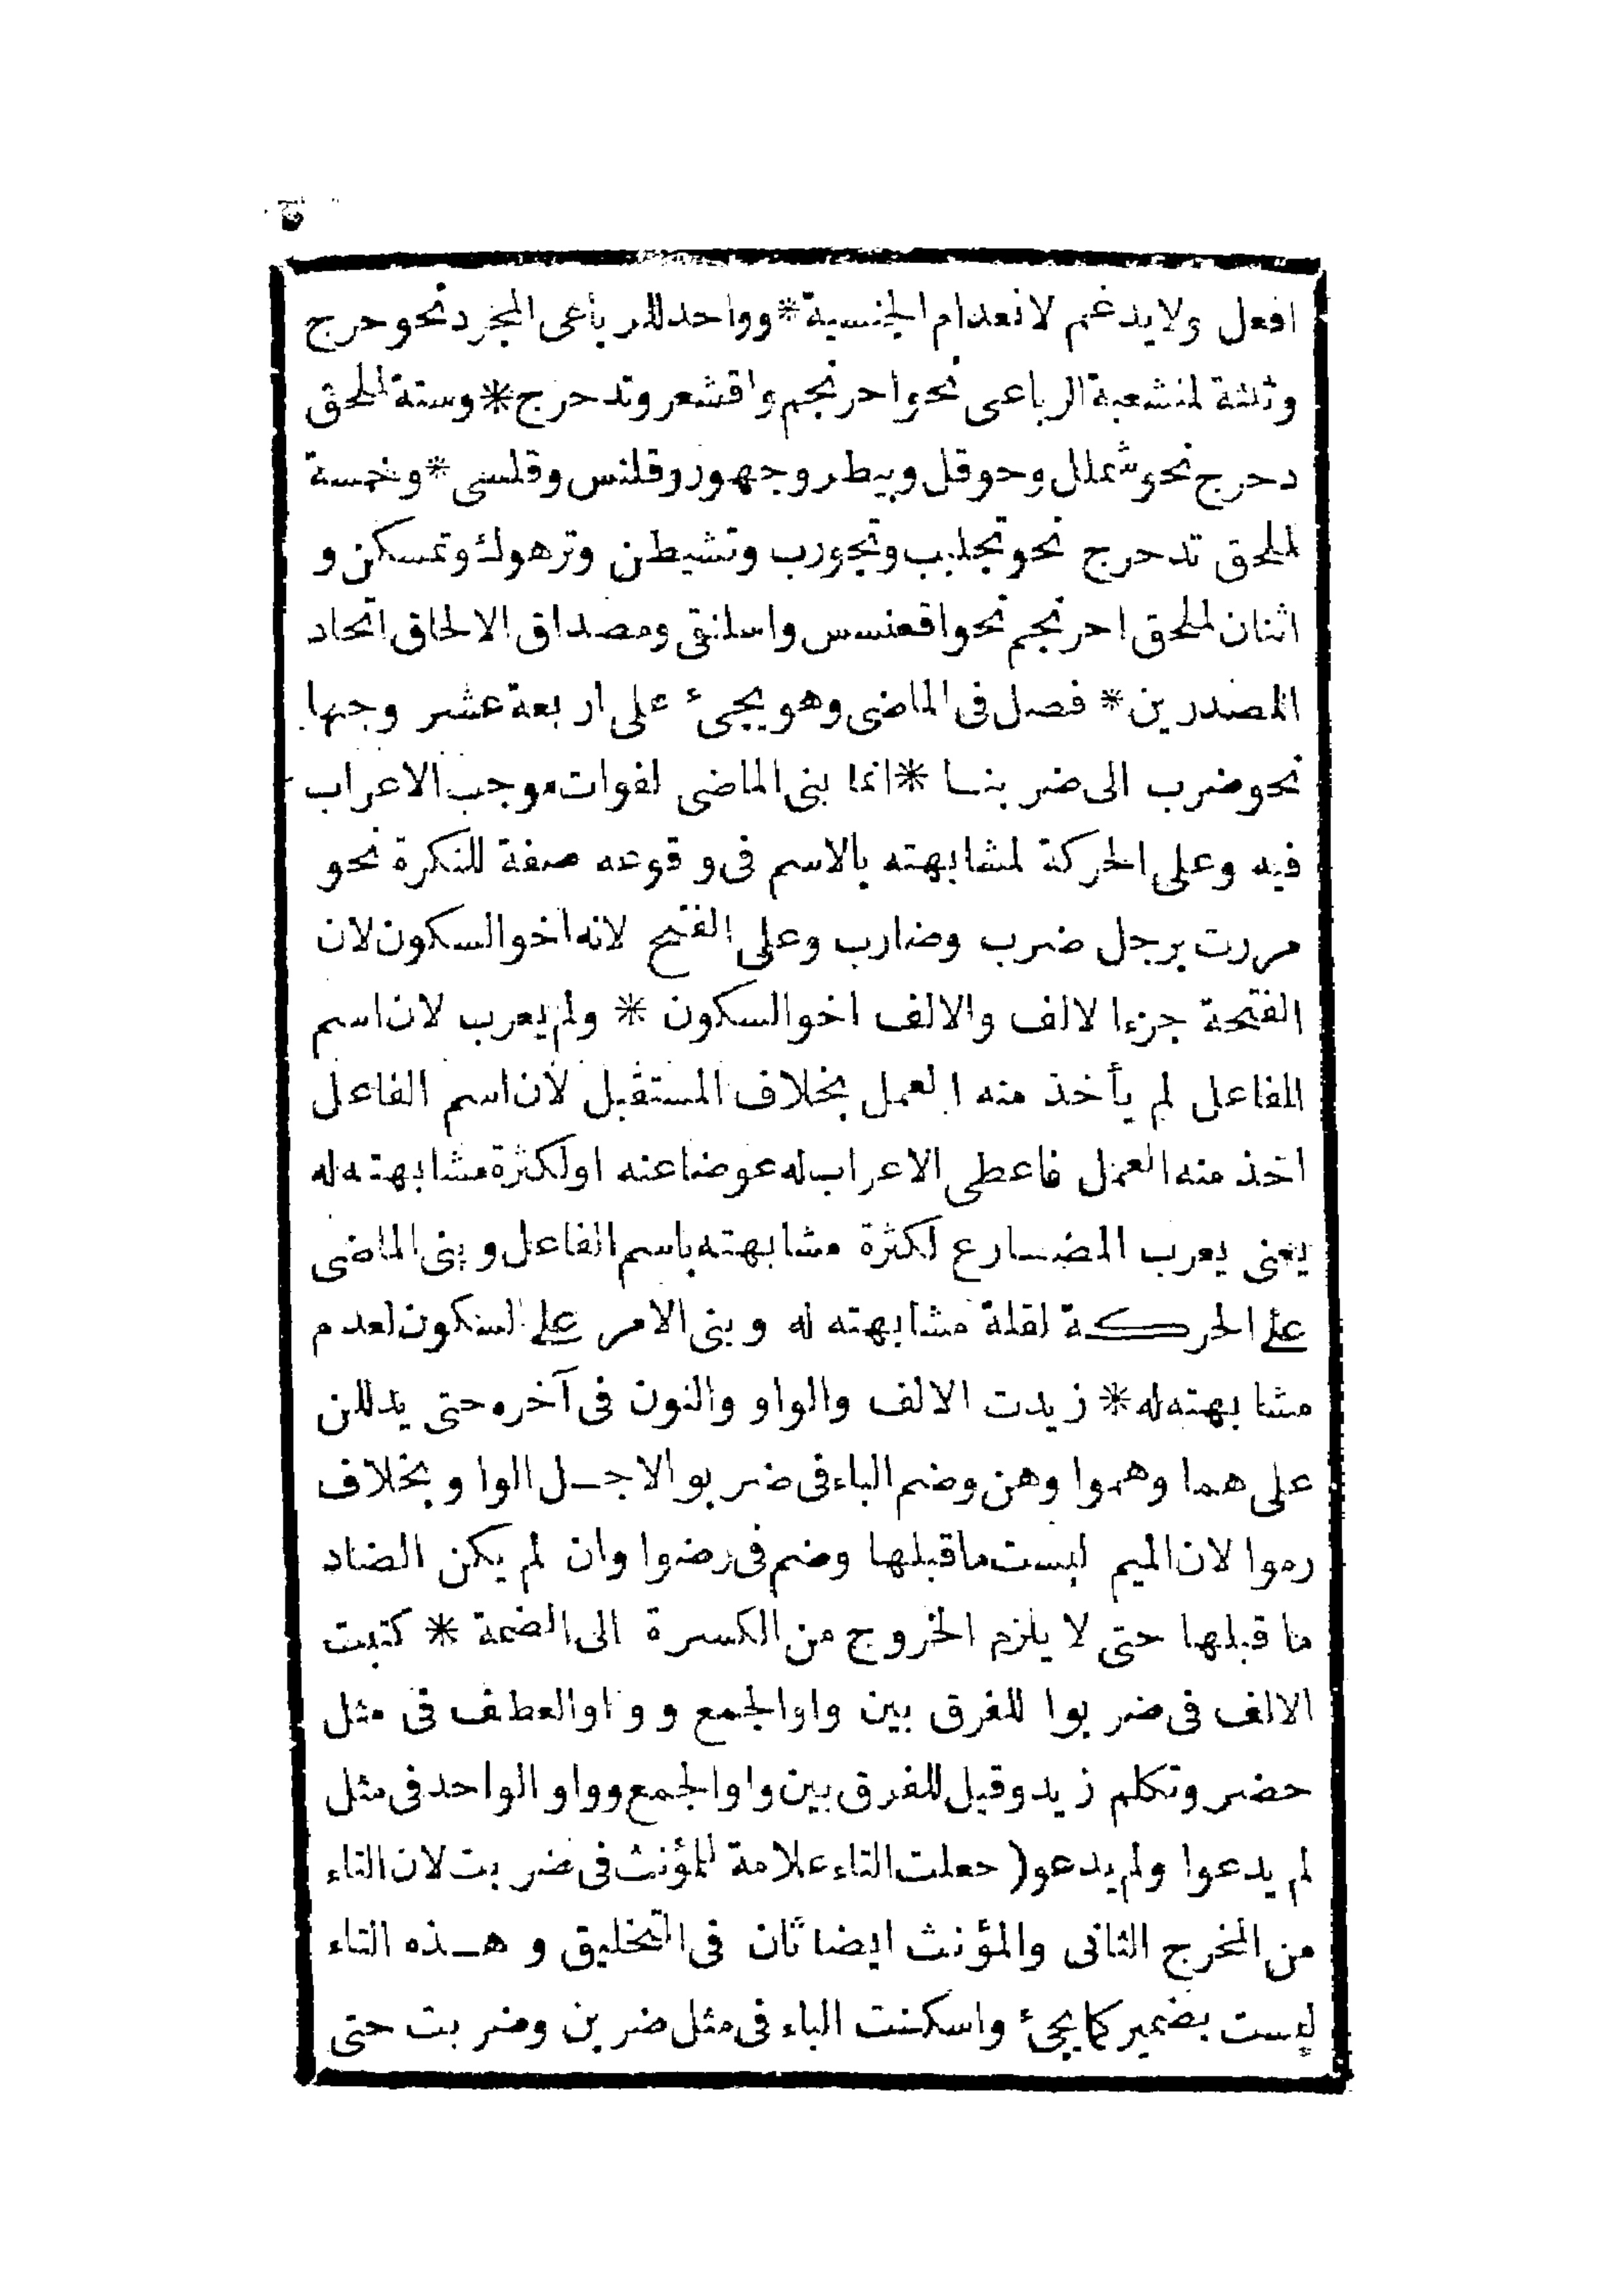 افعل ولا يدغم لانعدام الجنسية * وواحد للرباعى المجرد نحو حرج
وثلثة لمنشعبة الرباعى نحو احرنجم واقشعر وتدحرج * وستة لملحق
دحرج نحو شملل وحوقل وبيطر وجهور وقلنس وقلسى * وخمسة
لملحق تدحرج نحو تجلبب وتجورب وتشيطن وترهوك وتمسكن و
اثنان لملحق احرنجم نحو اقعنسس واسلنقى ومصداق الالحاق اتحاد
المصدرين * فصل فى الماضى وهو يجىء على اربعة عشر وجها
نحو ضرب الى ضربنا * انما بنى الماضى لفوات موجب الاعراب
فيه وعلى الحركة لمشابهته بالاسم فى وقوعه صفة للنكرة نحو
مررت برجل ضرب وضارب وعلى الفتح لانه اخو السكون لان
الفتحة جزءا لالف والالف اخو السكون * ولم يعرب لان اسم
الفاعل لم يأخذ منه العمل بخلاف المستقبل لأن اسم الفاعل
اخذ منه العمل فاعطى الاعراب له عوضا عنه او لكثرة مشابهته له
يعنى يعرب المضارع لكثرة مشابهته باسم الفاعل وبنى الماضى
على الحركة لقلة مشابهته له وبنى الامر على السكون لعدم
مشابهته له * زيدت الالف والواو والنون فى آخره حتى يدللن
على هما وهموا وهن وضم الباء فى ضربوا لاجل الواو بخلاف
رموا لان الميم ليست ماقبلها وضم فى رضوا وان لم يكن الضاد
ما قبلها حتى لا يلزم الخروج من الكسرة الى الضمة * كتبت
الالف فى ضربوا للفرق بين واو الجمع وواو العطف فى مثل
حضر وتكلم زيد وقيل للفرق بين واو الجمع وواو الواحد فى مثل
لم يدعوا ولم يدعو( جعلت التاء علامة للمؤنث فى ضربت لان التاء
من المخرج الثانى والمؤنث ايضا ثان فى التخليق و هذه التاء
ليست بضمير كما يجىء واسكنت الباء فى مثل ضربن وضربت حتى